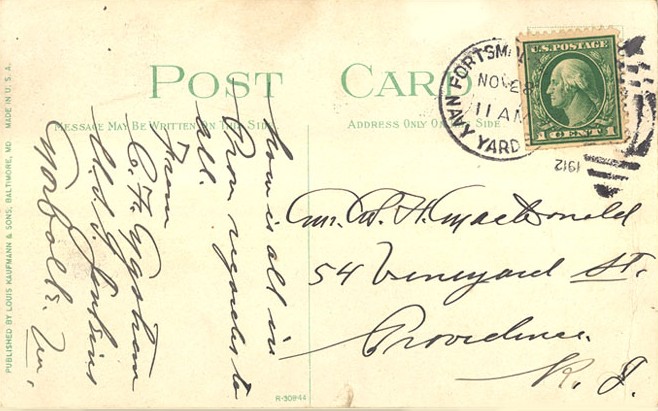 POST CARD
MESSAGE MAY BE WRITTEN ON THIS SIDE
ADDRESS ONLY ON SIDE
How is all in
Prov regards to
all.
From
U.S.S.
Norfolk. Va,
Mr. W. H. MacDonald
54 Vineyard St.
Providence
R. I.
U.S. POSTAGE
1 CENT 1
PORTSM
NAVY YARD
NOV 28
11 AM
1912
PUBLISHED BY LOUIS KAUFMANN & SONS, BALTIMORE, MD. MADE IN U.S.A.
R-30844